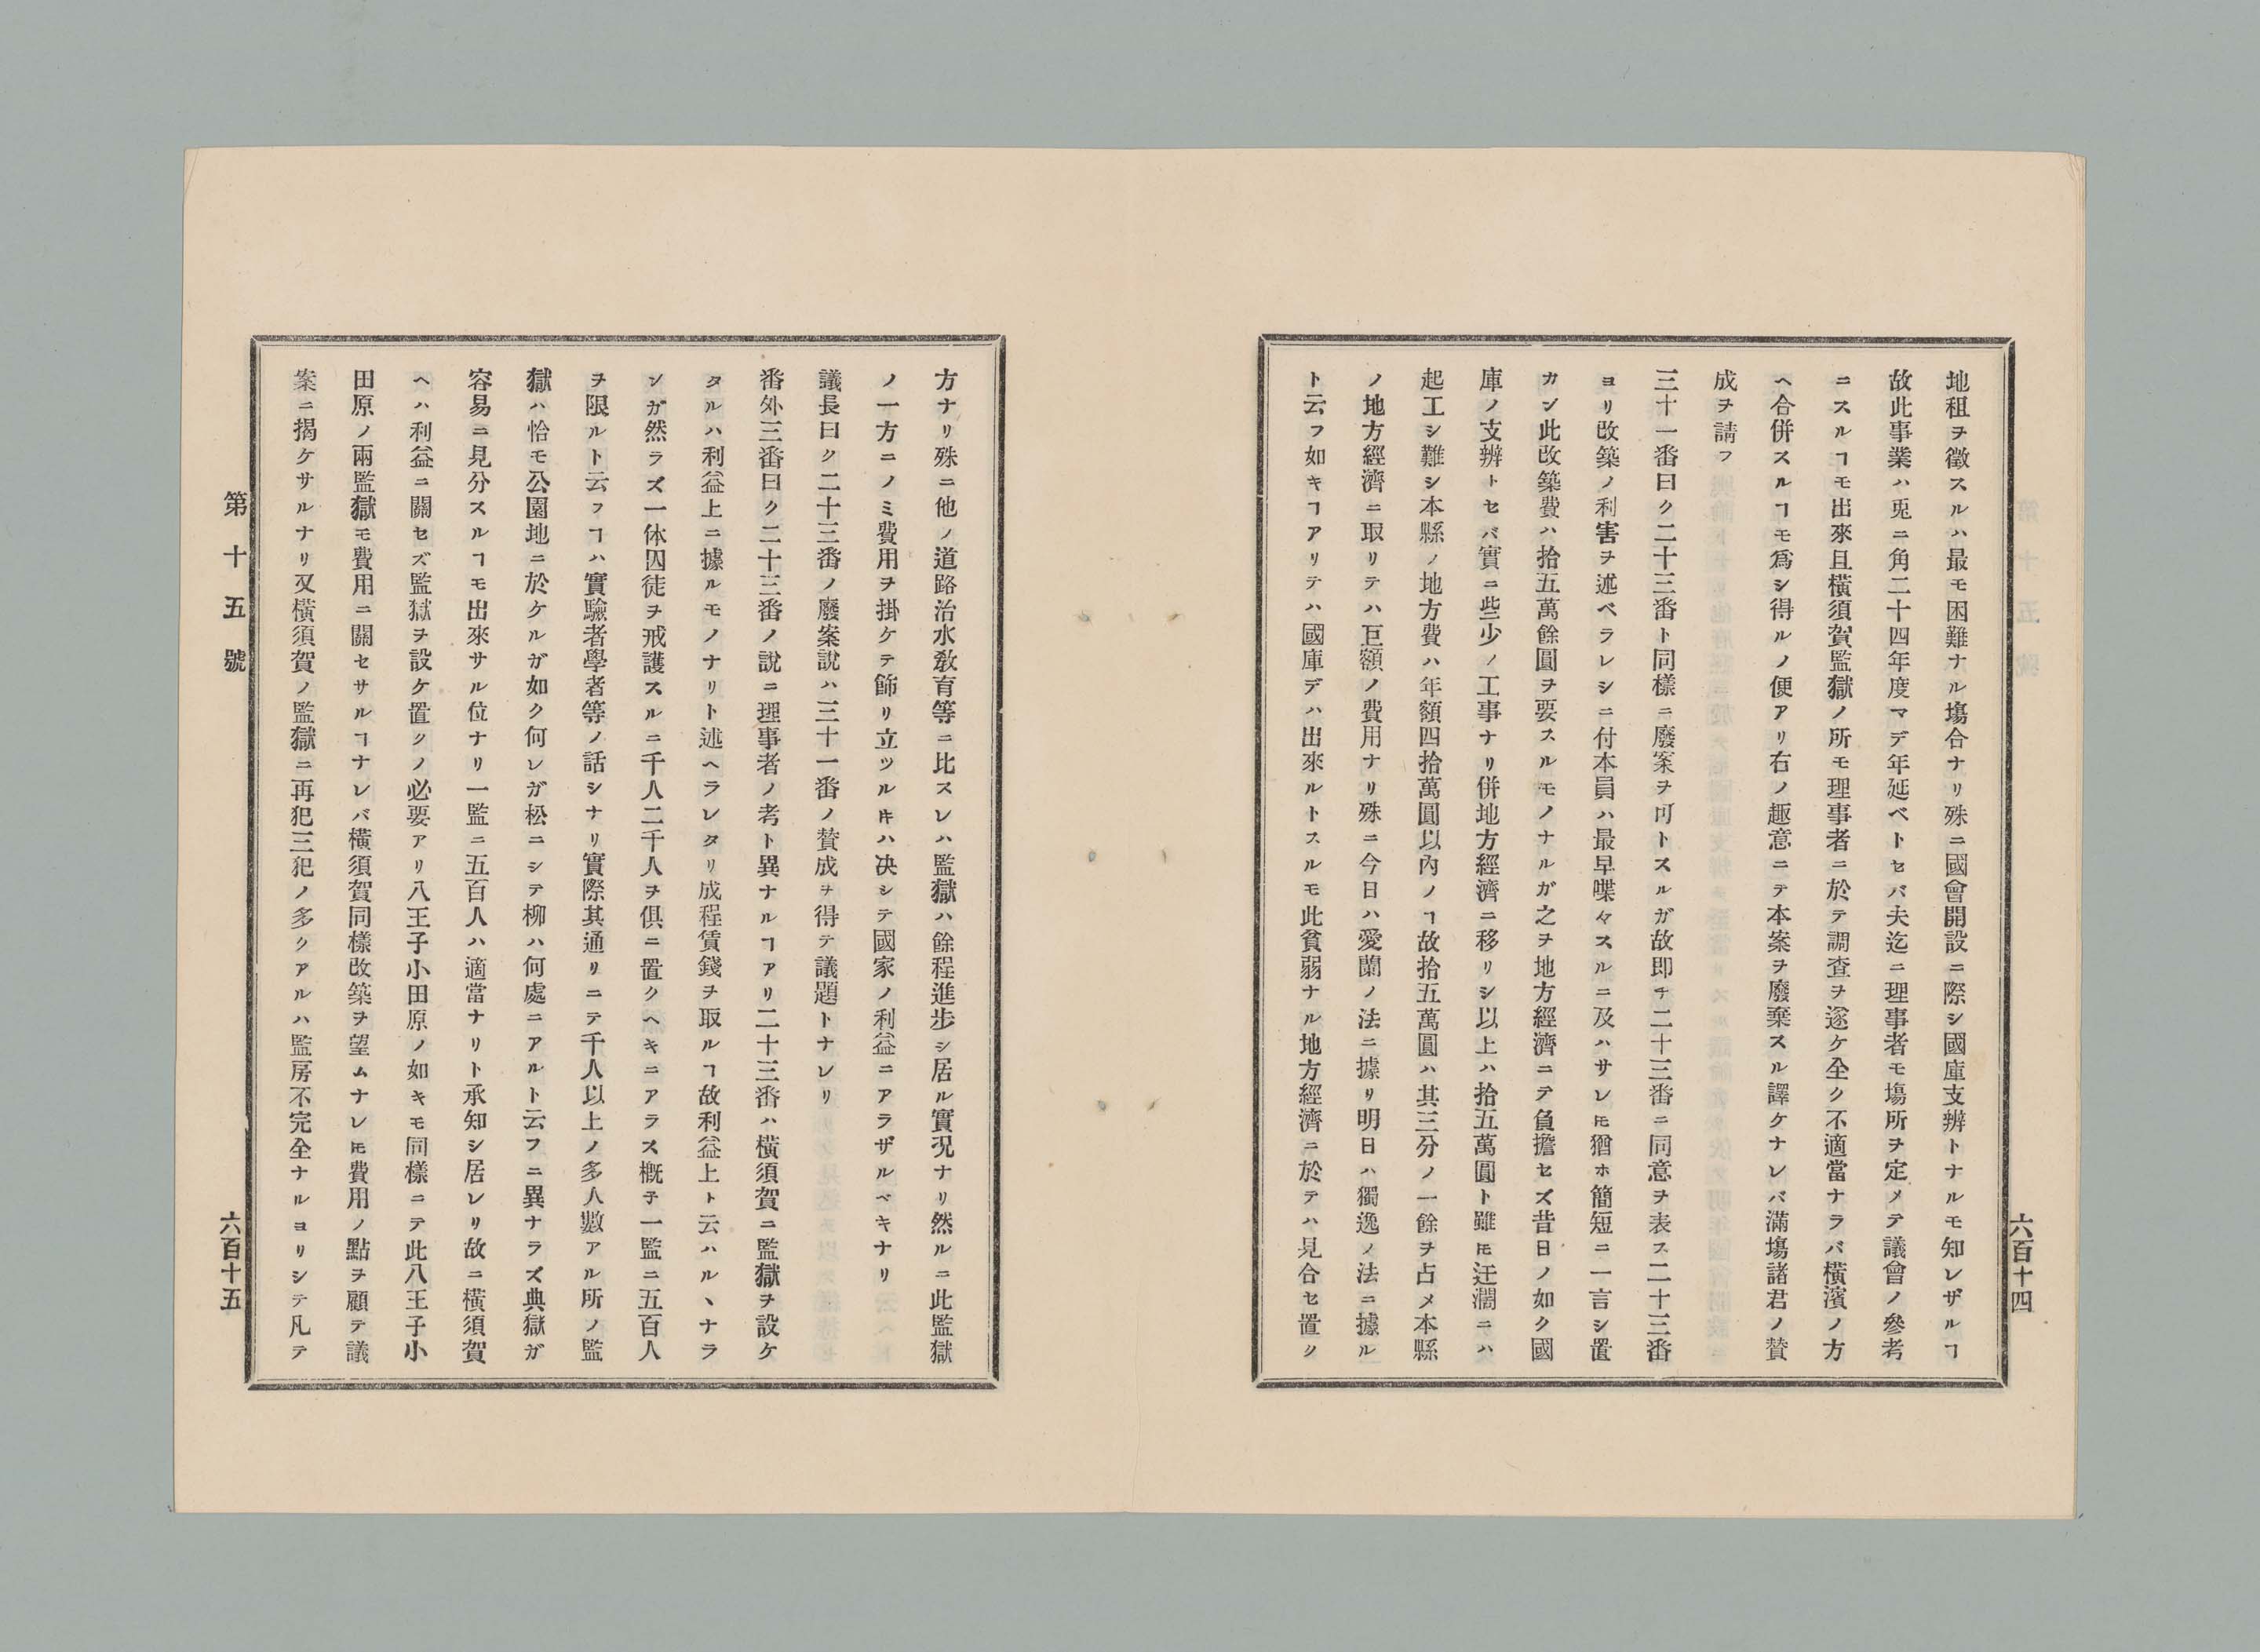 地租ヲ徵スルハ最モ困難ナル塲合ナリ殊ニ國會開設ニ際シ國庫支辨トナルモ知レザルヿ
故此事業ハ兎ニ角二十四年度マデ年延ベトセバ夫迄ニ理事者モ塲所ヲ定メテ議會ノ參考
ニスルヿモ出來且橫須賀監獄ノ所モ理事者ニ於テ調査ヲ遂ケ全ク不適當ナラバ橫濱ノ方
ヘ合併スルヿモ爲シ得ルノ便アリ右ノ趣意ニテ本案ヲ廢棄スル譯ケナレバ滿塲諸君ノ賛
成ヲ請フ
三十一番曰ク二十三番ト同樣ニ廢案ヲ可トスルガ故即チ二十三番ニ同意ヲ表ス二十三番
ヨリ改築ノ利害ヲ述ベラレシニ付本員ハ最早喋々スルニ及ハサレ𪜈猶ホ簡短ニ一言シ置
カン此改築費ハ拾五萬餘圓ヲ要スルモノナルガ之ヲ地方經濟ニテ負擔セズ昔日ノ如ク國
庫ノ支辨トセバ實ニ些少ノ工事ナリ併地方經濟ニ移リシ以上ハ拾五萬圓ト雖𪜈迂濶ニハ
起工シ難シ本縣ノ地方費ハ年額四拾萬圓以內ノヿ故拾五萬圓ハ其三分ノ一餘ヲ占メ本縣
ノ地方經濟ニ取リテハ巨額ノ費用ナリ殊ニ今日ハ愛蘭ノ法ニ據リ明日ハ獨逸ノ法ニ據ル
ト云フ如キヿアリテハ國庫デハ出來ルトスルモ此貧弱ナル地方經濟ニ於テハ見合セ置ク
六百十四
方ナリ殊ニ他ノ道路治水敎育等ニ比スレハ監獄ハ餘程進步シ居ル實况ナリ然ルニ此監獄
ノ一方ニノミ費用ヲ掛ケテ飾リ立ツル𪜈ハ决シテ國家ノ利益ニアラザルベキナリ
議長曰ク二十三番ノ廢案說ハ三十一番ノ賛成ヲ得テ議題トナレリ
番外三番曰ク二十三番ノ說ニ理事者ノ考ト異ナルヿアリ二十三番ハ橫須賀ニ監獄ヲ設ケ
タルハ利益上ニ據ルモノナリト述ヘラレタリ成程賃錢ヲ取ルヿ故利益上ト云ハルヽナラ
ンガ然ラズ一体囚徒ヲ戒護スルニ千人二千人ヲ俱ニ置クヘキニアラス槪子一監ニ五百人
ヲ限ルト云フヿハ實驗者學者等ノ話シナリ實際其通リニテ千人以上ノ多人數アル所ノ監
獄ハ恰モ公園地ニ於ケルガ如ク何レガ松ニシテ柳ハ何處ニアルト云フニ異ナラズ典獄ガ
容易ニ見分スルヿモ出來サル位ナリ一監ニ五百人ハ適當ナリト承知シ居レリ故ニ橫須賀
ヘハ利益ニ關セズ監獄ヲ設ケ置クノ必要アリ八王子小田原ノ如キモ同樣ニテ此八王子小
田原ノ兩監獄モ費用ニ關セサルヿナレバ橫須賀同樣改築ヲ望ムナレ𪜈費用ノ點ヲ顧テ議
案ニ揭ケサルナリ又橫須賀ノ監獄ニ再犯三犯ノ多クアルハ監房不完全ナルヨリシテ凡テ
第十五號
六百十五